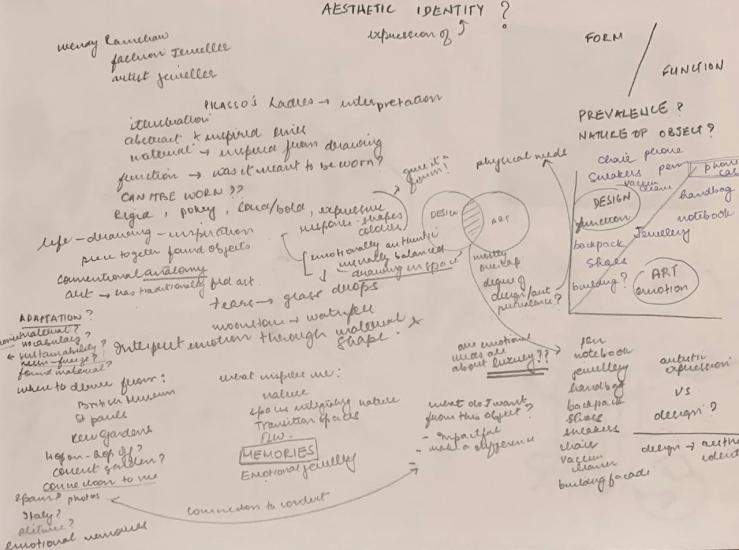 AESTHETIC IDENTITY ?
expression of
wendy Ramshaw
fashion Jeweller
artist jeweller
PICASSO'S Ladies → interpretation
illustration
abstract + inspired lines
material → inspired from drawing
function → was it meant to be worn?
CAN IT BE WORN ??
Rigid, pokey, loud/bold, expressive
response - shapes
colours
give it a form?
life-drawing-inspiration
piece together found objects
emotionally authentic
visually balanced
drawing in space
conventional anatomy
art → has traditionally
tears → glass drops
moonstone → water
Interpret emotion through material &
shape.
ADAPTATION?
material?
vocabulary?
sustainability?
found material?
where to derive from:
British Museum
St Pauls
Kew Gardens
covent garden?
connection to me
Spain? photos
Italy?
emotional memories
what inspires me:
nature
spaces integrating nature
Transition spaces
FLW.
MEMORIES
Emotional jewellery
connection to conduct
physical needs
DESIGN
ART
mostly
overlap
degree of
design/art
prevalence?
are emotional
needs all
about luxury??
what do I want
from this object?
- impactful
- make a difference
FORM
/
FUNCTION
PREVALENCE?
NATURE OF OBJECT?
chair phone
sneakers pen phone
case
vacuum
cleaner
DESIGN
function
handbag
notebook
backpack
Jewellery
shoes
building?
ART
emotion
pen
notebook
jewellery
handbag
backpack
shoes
sneakers
chair
vacuum
cleaner
building facade
artistic
expression
vs
design?
design →